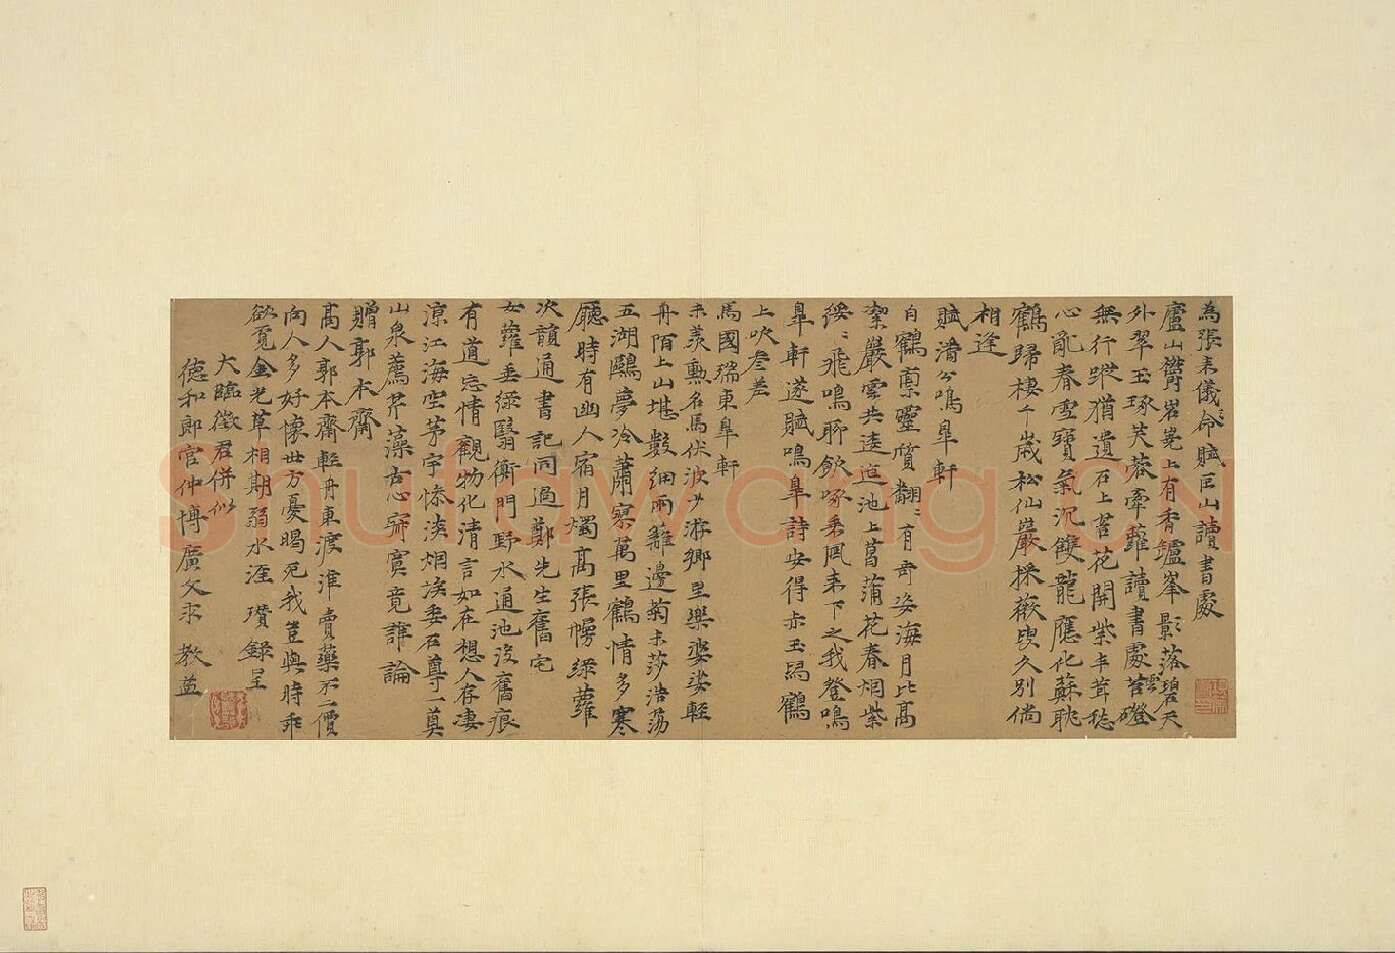 為張来儀命賦匡山讀書處
廬山欝岧嶤上有香鑪峯影落碧天
外翠玉琢芙蓉牽蘿讀書處雲磴
無行蹤猶遺石上苔花開紫丰茸嵇
心亂春雪寶氣沉雙龍應化蘇耽
鶴歸棲千歲松仙巖採薇叟久別倘
相逢
賦潘公鳴皐軒
白鶴禀靈質翩〻有奇姿海月比高
潔嚴雲共逶迤池上菖蒲花春烟紫
緌〻飛鳴聊飲啄乘風来下之我登鳴
皐軒遂賦鳴皐詩安得赤玉舄鶴
上吹叄差
馬國瑞東皐軒
未羡勳名馬伏波少游鄉里樂婆娑輕
舟陌上山堪數細雨籬邊菊未莎浩蕩
五湖鷗夢冷蕭寥萬里鶴情多寒
廳時有幽人宿月燭高張幔綠蘿
次韻通書記同過鄭先生舊宅
女蘿垂綠翳衡門野水通池沒舊痕
有道忘情觀物化清言如在想人存淒
涼江海空茅宇慘淡烟埃委石尊一奠
山泉薦芹藻古心寂寞竟誰論
贈郭本齋
高人郭本齋輕舟東渡淮賣藥不二價
向人多好懷世方憂暍死我豈與時乖
欲覓金光草相期弱水涯 瓚錄呈
大臨徵君併似
德和郎官仲博廣文求 教益
Shufawang.CN